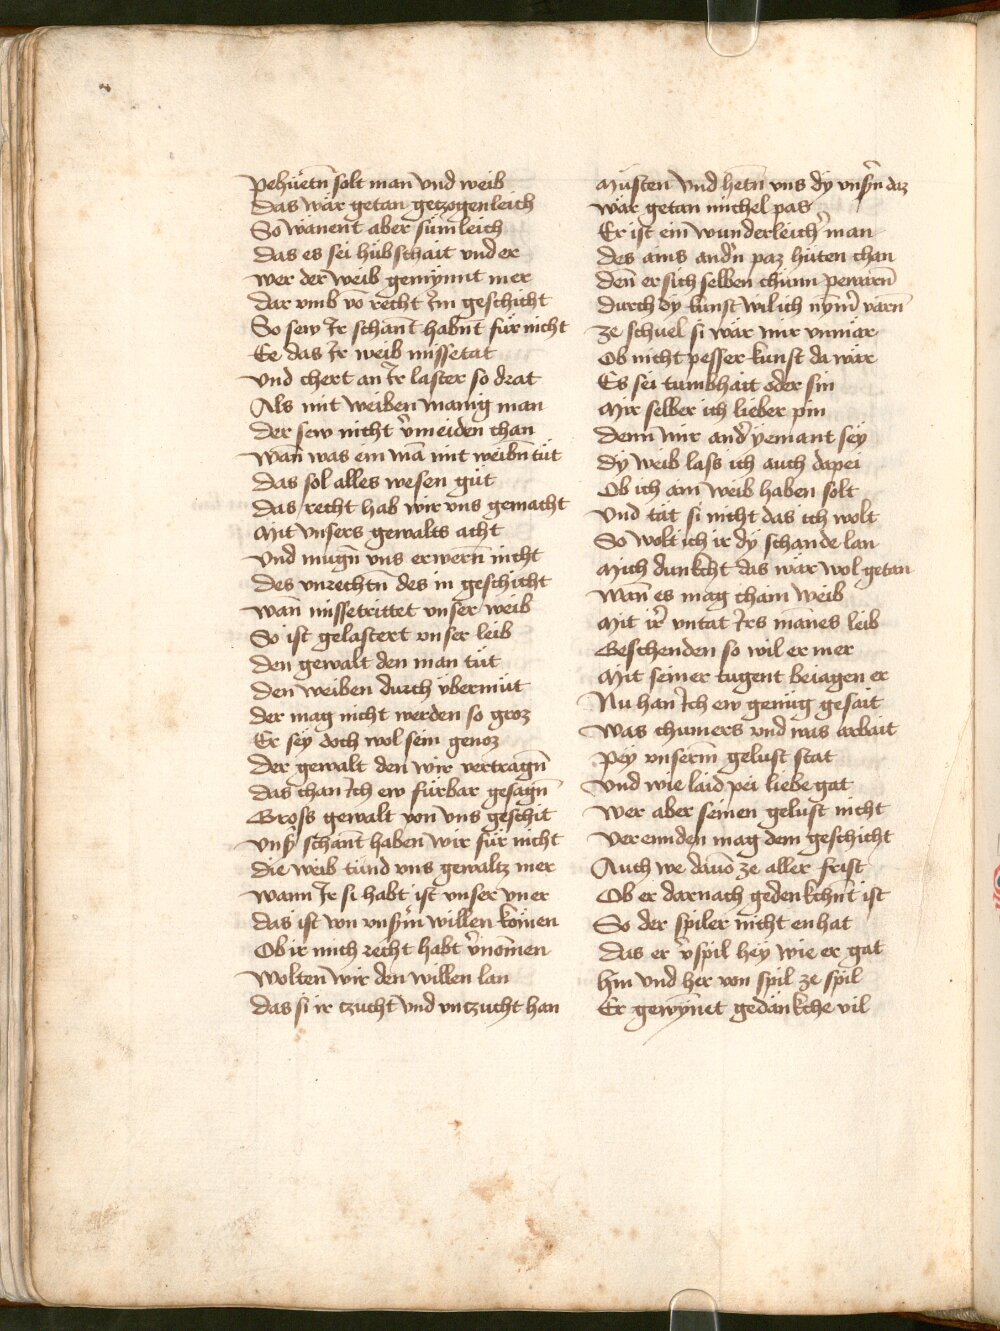 Pehuͤetn̄ solt man vnd weib
Das wär getan getzogenleich
So wänent aber sümleich
Das es sei hübschait vnd er
wer der weib gewynnt mer
Dar vmb vō recht Im geschicht
So sew Ir schant habn̄t für nicht
Ee das Ir weib missetat
Vnd chert an Ir laster so drat
Als mit weiben manig man
Der sew nicht v̉meiden chan
Wan̄ was ein mā mit weibn̄ tüt
Das sol alles wesen güt
Das recht hab wir vns gemacht
Mit vnsers gewalts acht
Vnd mugn̄ vns erwern̄ nicht
Des vnrechtn̄ des in geschicht
wan̄ missetrittet vnser weib
So ist gelastert vnser leib
Den gewalt den man tüt
Den weiben durch übermüt
Der mag nicht werden so groz
Er sey doch wol sein genoz
Der gewalt den wir vertragn̄
Das chan Ich ew fürbar gesagn̄
Gross gewalt von vns geschit
Vnsr̉ schant haben wir für nicht
Die weib tünd vns gewaltz mer
Wann Ir si habt ist vnser vner
Das ist von vnsr̉m willen komen
Ob ir mich recht habt v̉nomen
Wolten wir den willen lan
Das si ir tzucht vnd vntzucht han
Müsten vnd hetn̄ vns dy vnsr̉n daz
wär getan michel pas
Er ist ein wunderleichr̉ man
des ains andr̉n paz hüten chan
Den̄ er sich selben chünn pewarn̄
Durch dy kunst wil ich nymr̉ varn̄
ze schuel si wär mir vnmär
Ob nicht pesser kunst da wär
Es sei tumbhait oder sin
Mir selber ich lieber pin
Denn mir andr̉ yemant sey
Dy weib lass ich auch dapei
Ob ich am weib haben solt
Vnd tät si nicht das ich wolt
So wolt ich ir dy schande lan
Mich dunkcht das wär wol getan
Wan̄ es mag cham weib
Mit ir̉ vntat Irs mānes leib
Geschenden so wil er mer
Mit seiner tugent beiagen er
Nu han Ich ew genüg gesait
Was chumers vnd was arbait
Pey vnserm̄ gelust stat
Vnd wie laid pei liebe gat
Wer aber seinen gelust nicht
Vermiden mag dem geschicht
Auch we dauō ze aller frist
Ob er darnach gedenkchn̄t ist
So der spiler nicht enhat
Das er v̉spil hey wie er gat
Hin vnd her von spil ze spil
Er gewynnet gedänkche vil